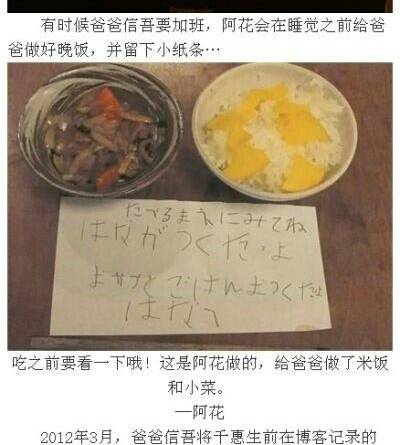 有时候爸爸信吾要加班，阿花会在睡觉之前给爸
爸做好晚饭，并留下小纸条…
たべるまえにみてね
はながつくたよ
おかずとごはんおつくたよ
はなへ
吃之前要看一下哦！这是阿花做的，给爸爸做了米饭
和小菜。
—阿花
2012年3月，爸爸信吾将千惠生前在博客记录的